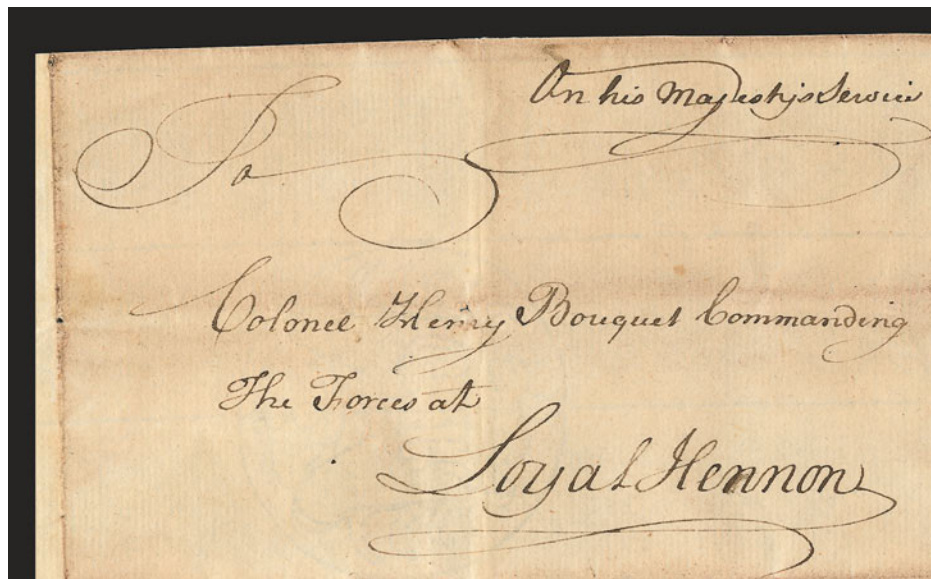 On his Majestys Service
To
Colonel Henry Bouquet Commanding
The Forces at
Loyal Hennon